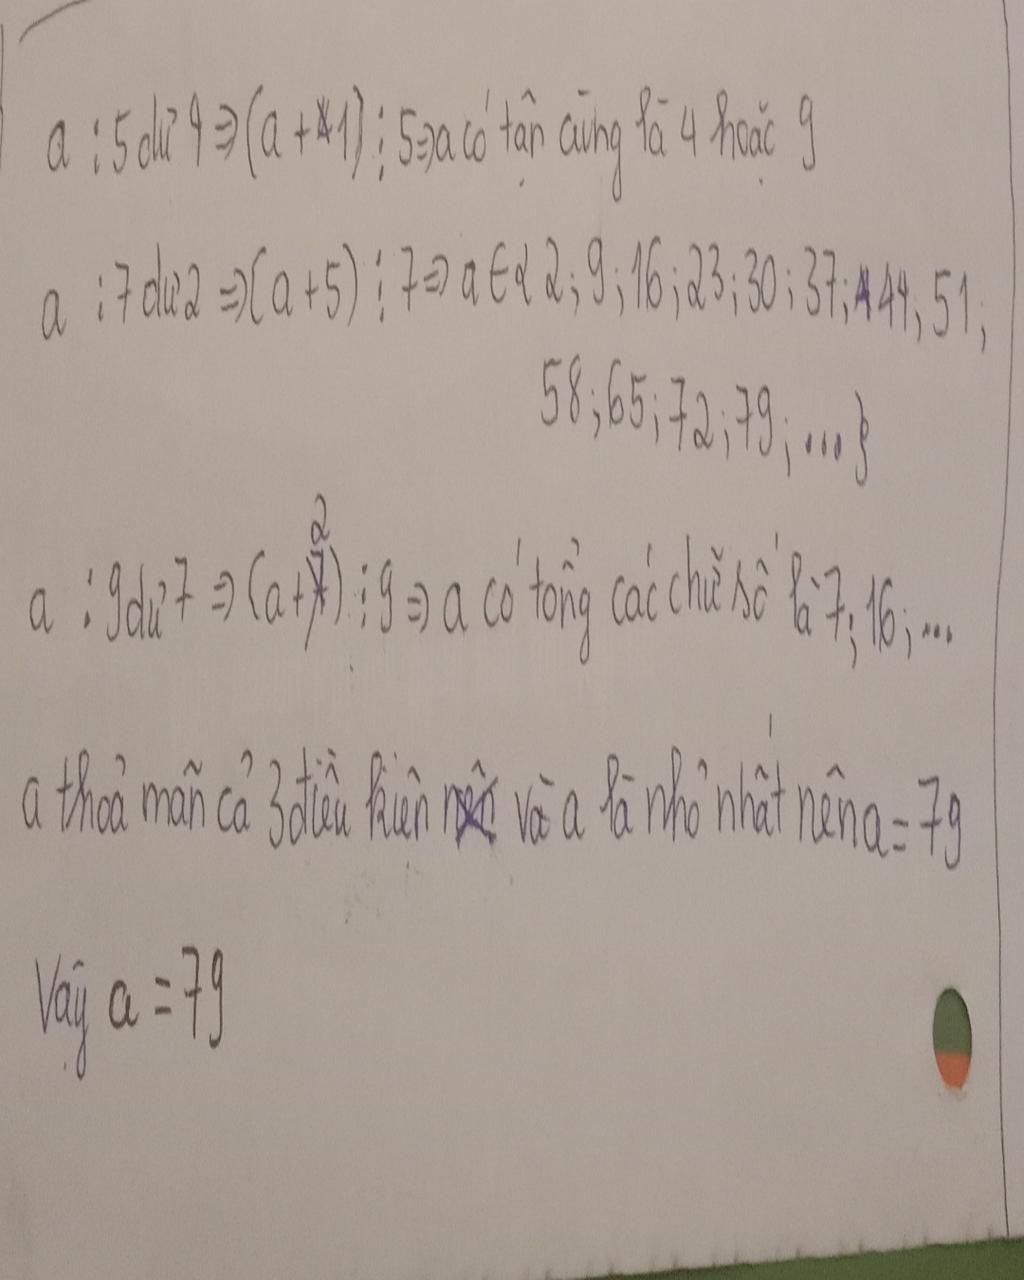 a : 5 dư 4 => (a + 1) ⋮ 5 => a có tận cùng là 4 hoặc 9
a : 7 dư 2 => (a + 5) ⋮ 7 => a ∈ { 2; 9; 16; 23; 30; 37; 44; 51;
58; 65; 72; 79; ... }
a : 9 dư 7 => (a + 2) ⋮ 9 => a có tổng các chữ số là 7; 16; ...
a thoả mãn cả 3 điều kiện và a là nhỏ nhất nên a = 79
Vậy a = 79